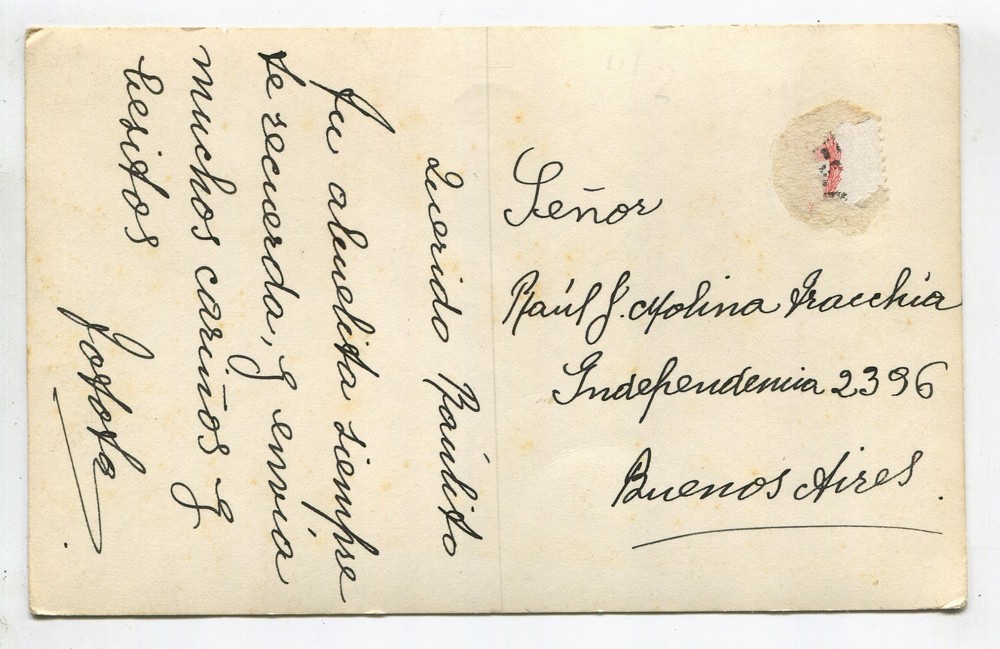 Querido Raúlito
Tu abuelita siempre
te recuerda, y envía
muchos cariños y
besitos
Totota
Señor
Raúl J. Molina Fracchia
Independencia 2396
Buenos Aires.